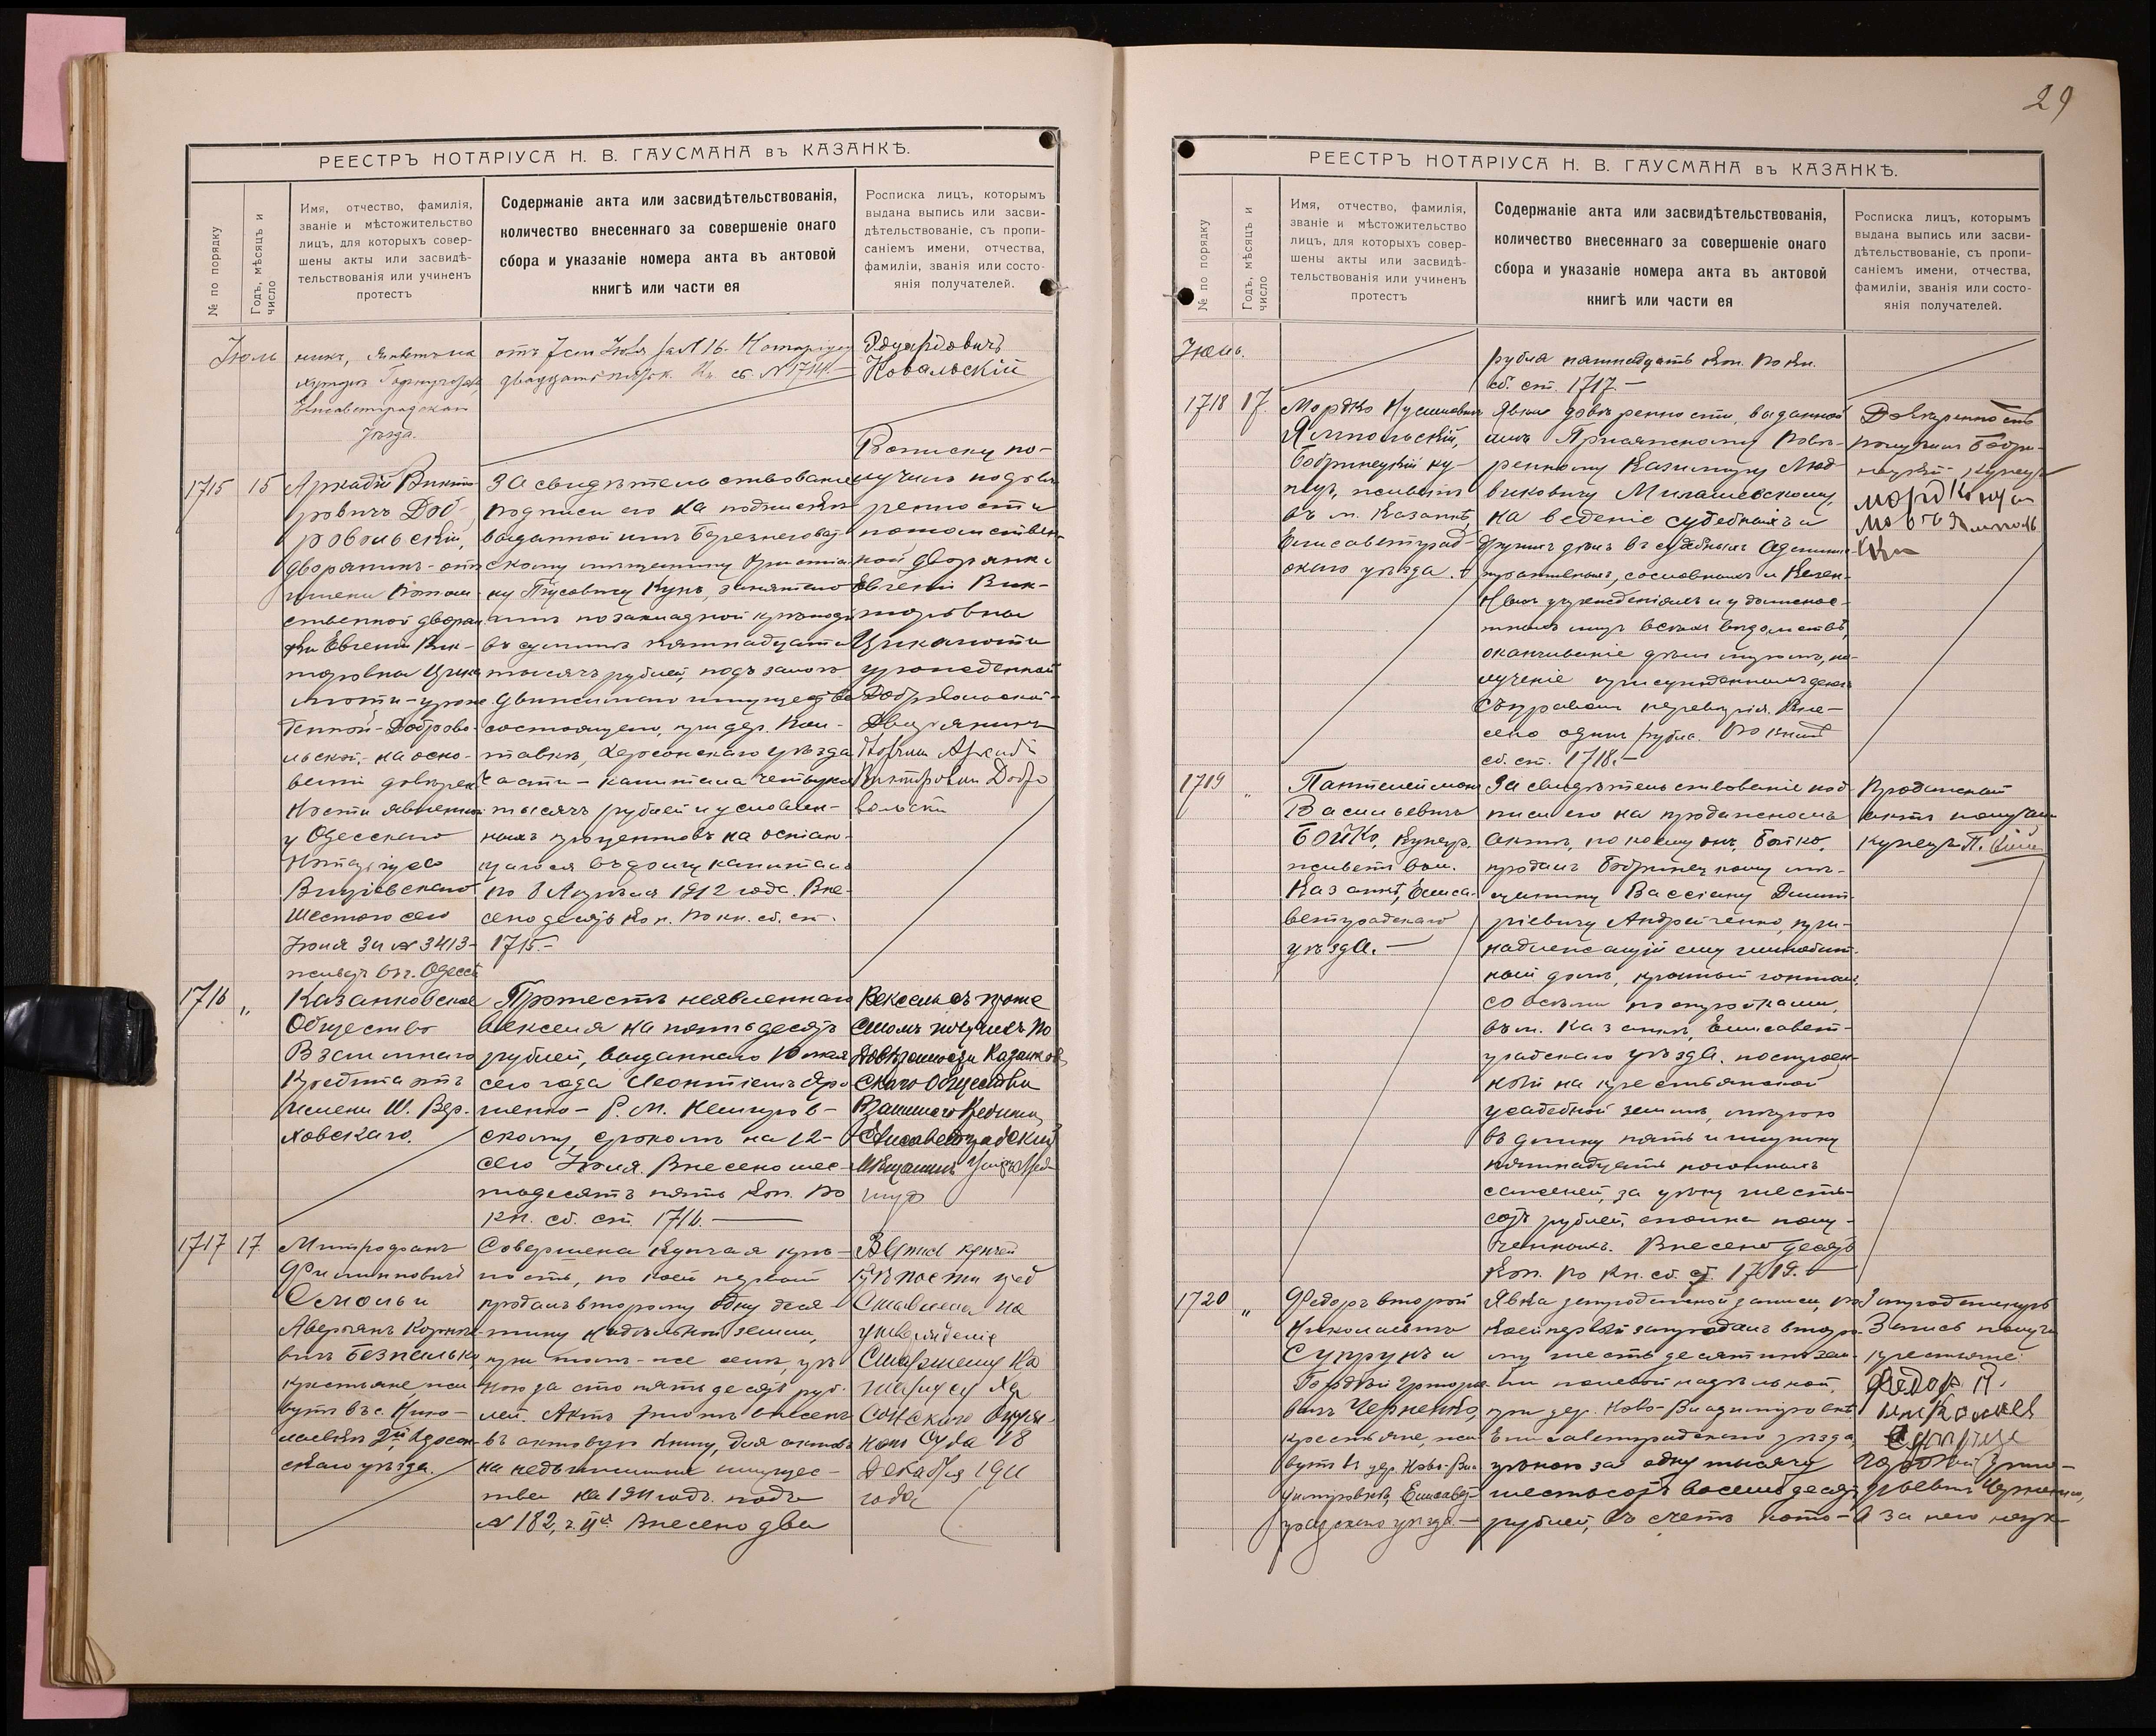 29
РЕЕСТРЪ НОТАРІУСА Н. В. ГАУСМАНА въ КАЗАНКѢ.
№ по порядку
Годъ, мѣсяцъ и
число
Имя, отчество, фамилія,
званіе и мѣстожительство
лицъ, для которыхъ совер-
шены акты или засвидѣ-
тельствованія или учиненъ
протестъ
Содержаніе акта или засвидѣтельствованія,
количество внесеннаго за совершеніе онаго
сбора и указаніе номера акта въ актовой
книгѣ или части ея
Росписка лицъ, которымъ
выдана выпись или засви-
дѣтельствованіе, съ пропи-
саніемъ имени, отчества,
фамиліи, званія или состо-
янія получателей.
Іюль
Елисаветградскаго
уѣзда.
№ 1714.
Эдуардовичъ
Ковальскій
1715
15
Аркадій Викто-
ровичъ Доб-
ровольскій,
дворянинъ - отъ
имени потом-
ственной дворян-
ки Евгеніи Вик-
торовны
урож-
денной - Доброво-
льской, - на осно-
ваніи довѣрен-
ности явленной
у Одесскаго
Нотаріуса
шестого сего
Іюля за № 3413 -
живущ. въ г. Одессѣ
Засвидѣтельствованіе
подписи его на
выданной имъ
въ суммѣ пятнадцати
тысячъ рублей, подъ залогъ
движимаго имущества
состоящаго, при дер. Кон-
Херсонскаго уѣзда
части - капитала четырехъ
тысячъ рублей и условлен-
ныхъ процентовъ на остаю-
щагося въ долгу капитала
по 8 Апрѣля 1912 года. Вне-
сено десять коп. По кн. сб. ст.
1715. -
потомствен-
ной дворянки
Евгеніи Вик-
торовны
урожденной
Добровольской
Дворянинъ
Аркадій
Викторовичъ Добро
вольскій
1716
"
Казанковское
Общество
Взаимнаго
Кредита отъ
имени Ш. Вер-
ховскаго.
Протестъ неявленнаго
векселя на пятьдесятъ
рублей, выданнаго 10 мая
сего года Леонтіемъ
срокомъ на 12 -
сего Іюля. Внесено шес-
тьдесятъ пять коп. По
кн. сб. ст. 1716.
Вексель съ проте
стомъ получилъ по
довѣренности Казанков
скаго Общества
Взаимнаго Кредита
Елисаветградскій
Мѣщанинъ
1717
17
Митрофанъ
Филипповичъ
Смолы и
Аверьянъ
Безпалько,
крестьяне, жи-
вутъ въ с. Нико-
лаевкѣ 2й, Херсон-
скаго уѣзда.
Совершена купчая крѣ-
пость, по коей первый
продалъ второму одну деся-
тину надѣльной земли,
при томъ-же селѣ, цѣ-
ною за сто пятьдесятъ руб-
лей. Актъ этотъ внесенъ
въ актовую книгу, для актовъ
на недвижимыя имущес-
тва на 1911 годъ подъ
№ 182, Внесено два
Выпись купчей
крѣпости пред
ставлена на
утвержденіе
Старшему Но
таріусу Хер
сонскаго Окруж-
наго Суда 18
Декабря 1911
года
РЕЕСТРЪ НОТАРІУСА Н. В. ГАУСМАНА въ КАЗАНКѢ.
№ по порядку
Годъ, мѣсяцъ и
число
Имя, отчество, фамилія,
званіе и мѣстожительство
лицъ, для которыхъ совер-
шены акты или засвидѣ-
тельствованія или учиненъ
протестъ
Содержаніе акта или засвидѣтельствованія,
количество внесеннаго за совершеніе онаго
сбора и указаніе номера акта въ актовой
книгѣ или части ея
Росписка лицъ, которымъ
выдана выпись или засви-
дѣтельствованіе, съ пропи-
саніемъ имени, отчества,
фамиліи, званія или состо-
янія получателей.
Іюль.
рубля пятнадцать коп. По кн.
сб. ст. 1717. -
1718
17.
Мордко
Ямпольскій,
Бобринецкій ку-
пецъ, живетъ
въ м. Казанкѣ,
Елисаветград-
скаго уѣзда.
Явка довѣренности, выданной
имъ Присяжному Повѣ-
ренному Казимиру Люд-
виковичу Милашевскому,
на веденіе судебныхъ и
другихъ дѣлъ въ судебныхъ админи-
стративныхъ, сословныхъ и казен-
ныхъ учрежденіяхъ и у должнос-
тныхъ лицъ всѣхъ вѣдомствъ,
оканчиваніе дѣлъ миромъ, по-
лученіе присужденныхъ денегъ
съ правомъ передовѣрія. Вне-
сено одинъ рубль. По книгѣ
сб. ст. 1718. -
Довѣренность
получилъ Бобри-
нецкій купецъ
1719
"
Пантелеймонъ
Васильевичъ
Бойко, купецъ
живетъ въ м.
Казанкѣ, Елиса-
ветградскаго
уѣзда. -
Засвидѣтельствованіе под-
писи его на продажномъ
актѣ, по коему онъ, Бойко,
продалъ Бобринецкому мѣ-
щанину Вассіану Дмит-
ріевичу Андрейченко, при-
надлежащій ему глинобит-
ный домъ, крытый
со всѣми постройками,
въ м. Казанкѣ, Елисавет-
градскаго уѣзда, построен-
ный на крестьянской
усадебной землѣ, мѣрою
въ длину пять и ширину
пятнадцать погонныхъ
саженей, за цѣну шесть-
сотъ рублей, сполна полу-
ченныхъ. Внесено десять
коп. По кн. сб. ст. 1719. -
Продажный
актъ получилъ
купецъ П.
1720
"
Федоръ второй
Николаевъ
Супрунъ и
Гордѣй Григорье-
вичъ Черненко,
крестьяне, жи-
вутъ въ дер. Ново-Вла-
димировкѣ, Елисавет-
градскаго уѣзда. -
Явка запродажной записи, по
коей первый запродалъ второ-
му шесть десятинъ зем-
ли полевой надѣльной,
при дер. Ново-Владимировкѣ
Елисаветградскаго уѣзда,
цѣною за одну тысячу
шестьсотъ восемьдесятъ
рублей, въ счетъ кото-
Запродажную
Запись получили
крестьяне:
Федоръ II.
Николаевъ
Супрунъ
Гордѣй Григо-
рьевичъ Черненко,
а за него негр-